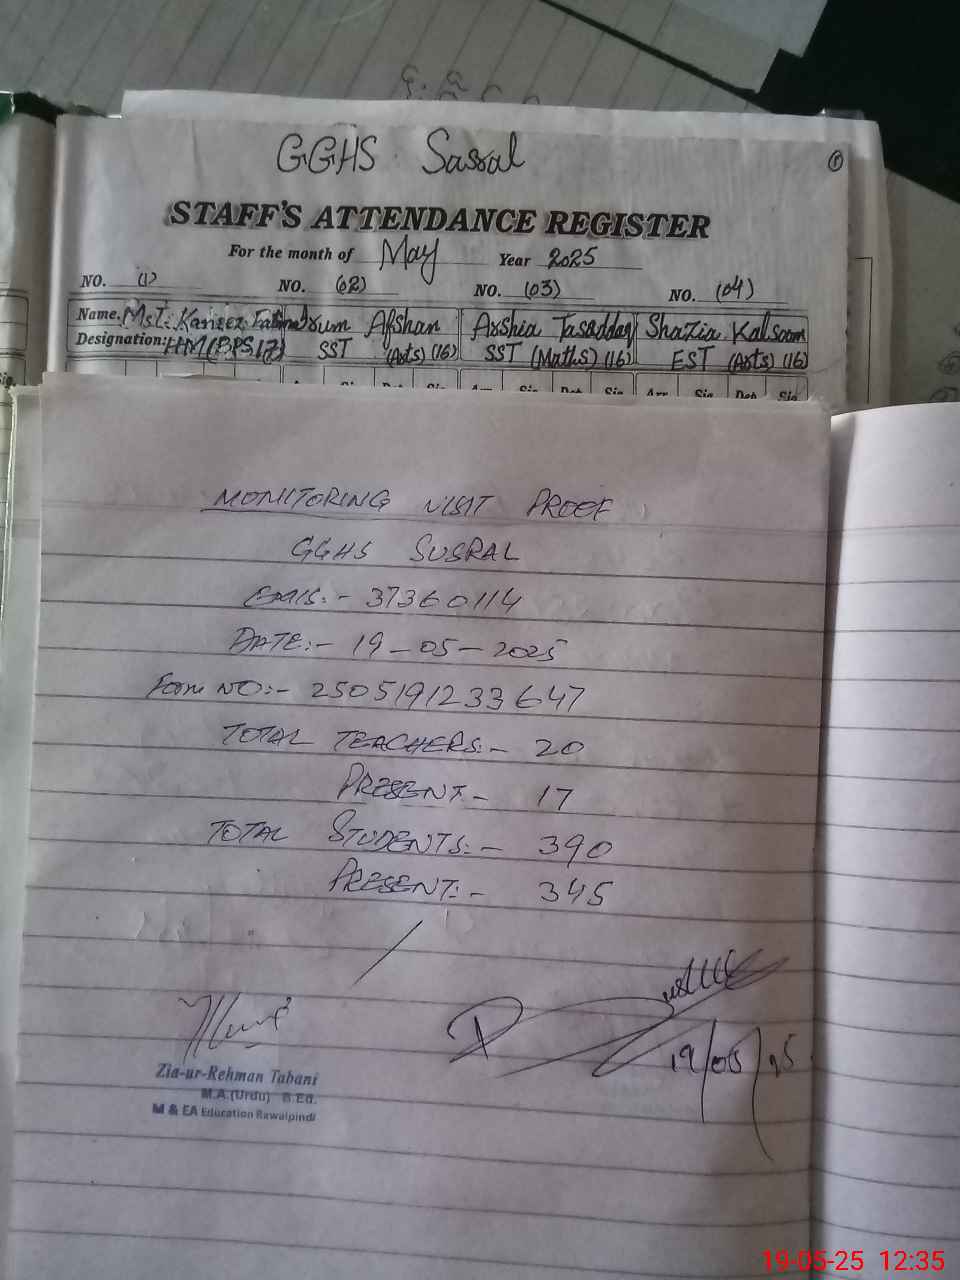 GGHS Sasral
STAFF'S ATTENDANCE REGISTER
For the month of May Year 2025
NO. (1) NO. (02) NO. (03) NO. (04)
Name. Mst. Kaneez Fatima Irum Afshan Arshia Tasaddaq Shazia Kalsoom
Designation: HM (BPS.17) SST (Arts) (16) SST (Maths) (16) EST (Arts) (16)
Arr Sig Dep Sig Arr Sig Dep Sig
MONITORING VISIT PROOF
GGHS SUSRAL
EMIS:- 37360114
DATE:- 19-05-2025
Form NO:- 2505191233647
TOTAL TEACHERS:- 20
PRESENT- 17
TOTAL STUDENTS:- 390
PRESENT:- 345
19/05/25
Zia-ur-Rehman Tabani
M.A.(Urdu) B.Ed.
M & EA Education Rawalpindi
19-05-25 12:35